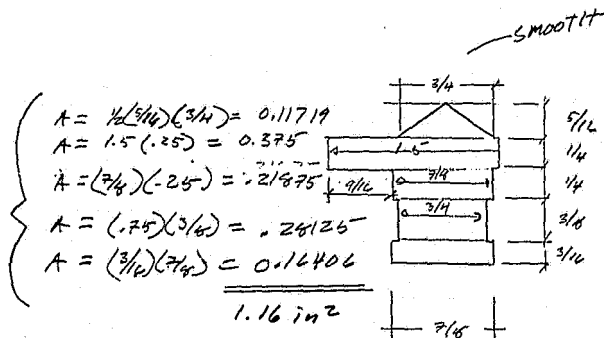 SMOOTH
A = 1/2(5/16)(3/4) = 0.11719
A = 1.5(.25) = 0.375
A = (7/8)(.25) = .21875
A = (.75)(3/8) = .28125
A = (3/16)(7/8) = 0.16406
1.16 in²
3/4
5/16
1.5
1/4
9/16
7/8
1/4
3/4
3/8
3/16
7/8